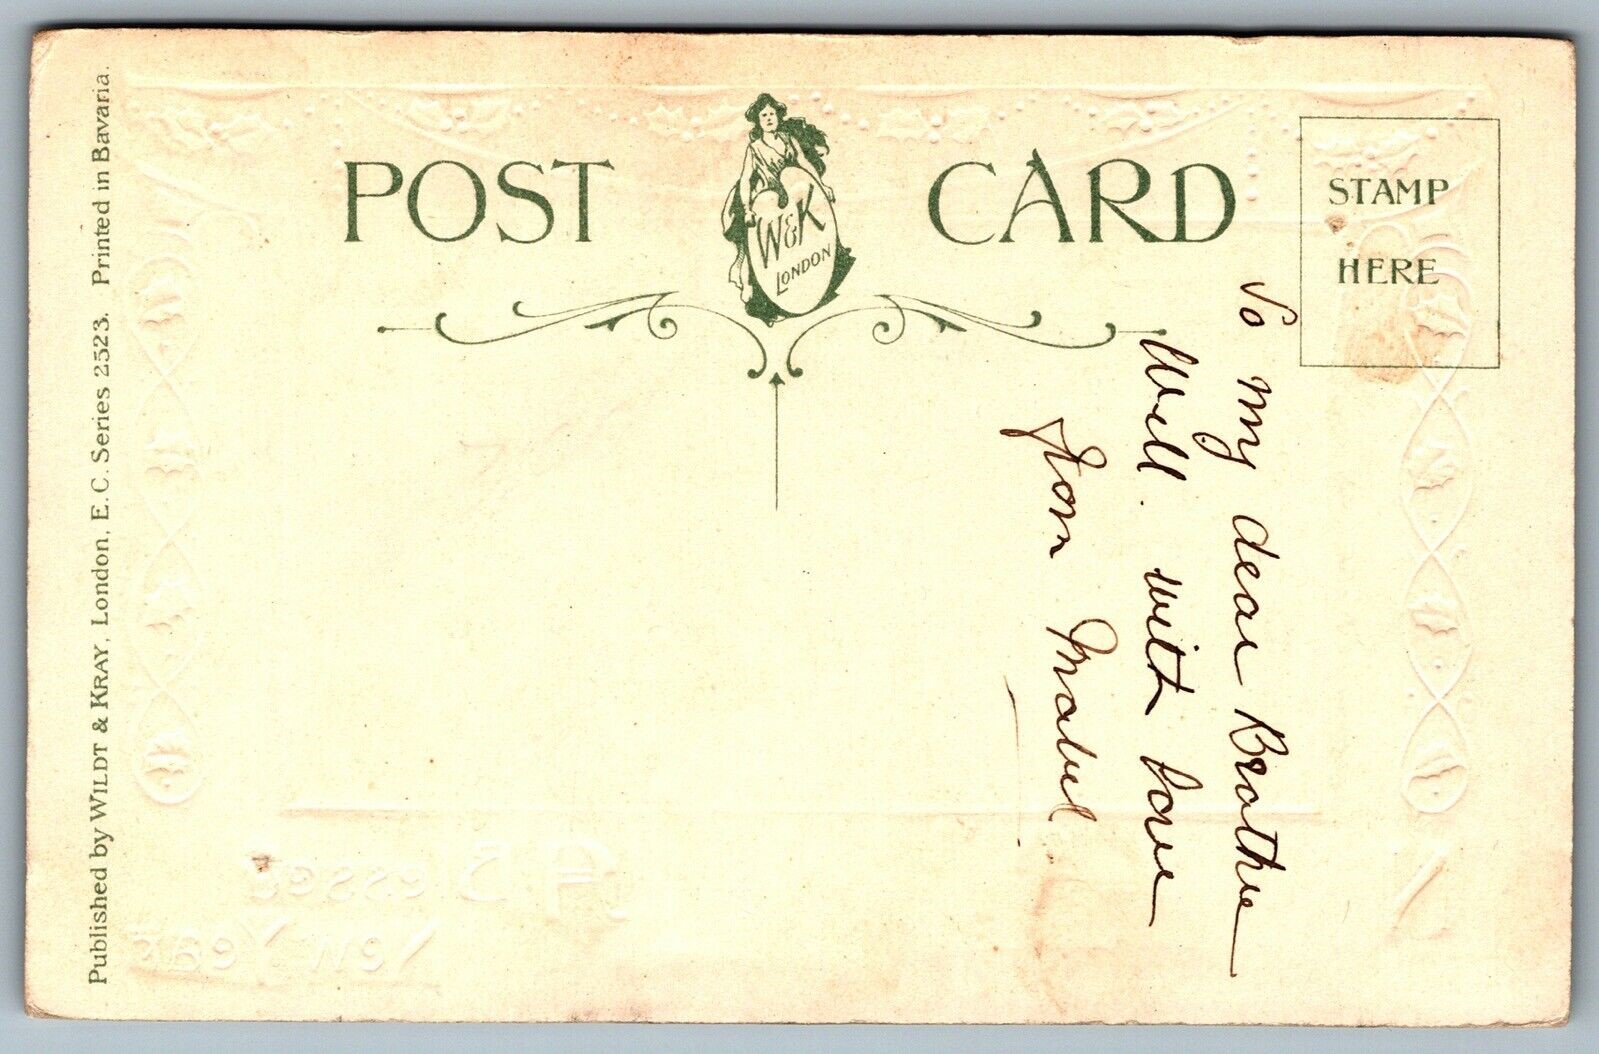 POST CARD
W&K
LONDON
STAMP
HERE
To my dear Brother
Will. with love
from Mabel
Published by WILDT & KRAY, London, E.C. Series 2523. Printed in Bavaria.
A Blessed
New Year